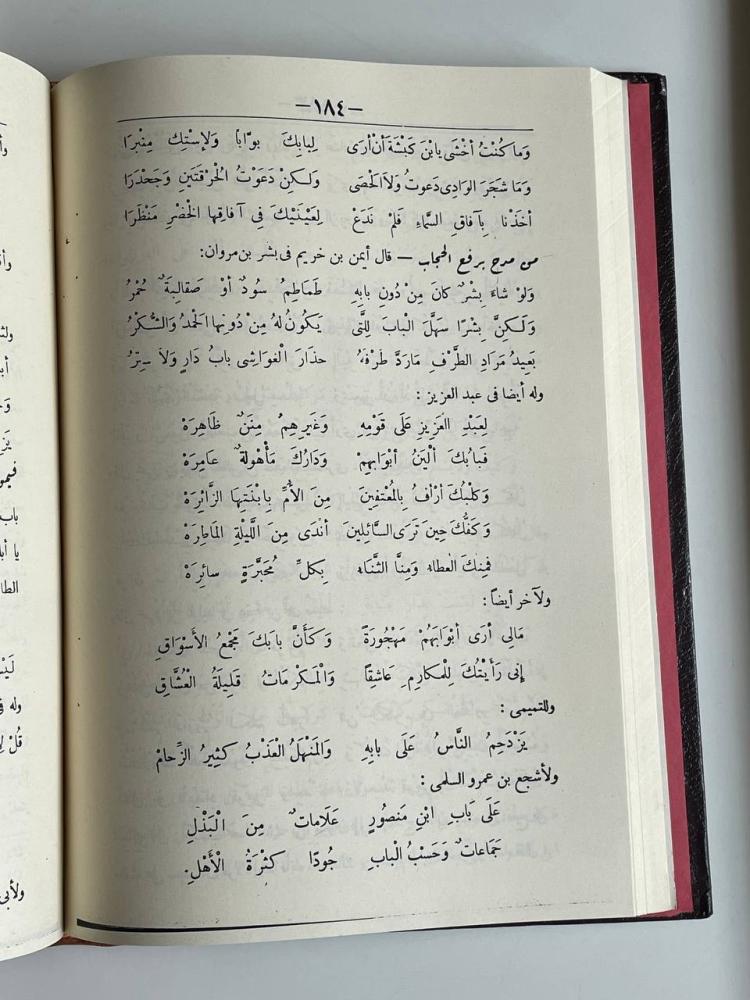 —١٨٤—
وَما كُنْتُ أخْشَى يابْنَ كَبْشَةَ أنْ أرَى لِبابِكَ بوّاباً ولاِسْتِكِ مِنْبرَا
وَمَا شَجَرَ الوَادِى دَعوتُ ولاَ الحَصَى ولَكِنْ دَعَوْتُ الحُرْقَتَيَنِ وَجَحْدَرَا
أخَذْنا بِآفاقِ السَّماءِ فَلمْ نَدَعْ لِعَيْنَيْكَ فى آفاقِها الخُضْرِ مَنْظَرَا
من مدح برفع الحجاب — قال أيمن بن خريم فى بشر بن مروان:
وَلَوْ شاءَ بِشْرٌ كانَ مِنْ دُونِ بابِهِ طَماطِمُ سُودٌ أوْ صَقالِبَةٌ حُمْرُ
وَلَكِنَّ بِشْرًا سَهَّلَ البابَ لِلَّتِى يَكونُ لهُ مِنْ دُونِها الحَمدُ والشُّكْرُ
بَعِيدُ مَرَادِ الطَّرْفِ مَارَدَّ طَرْفَهُ حذارَ الغَواشِى بابُ دَارٍ ولاَ سِتْرُ
وله أيضا فى عبد العزيز :
لِعَبْدِ العَزِيزِ عَلَى قَوْمِهِ وَغَيرِهِمُ مِنَنٌ ظاهِرَهْ
فَبابُكَ ألْيَنُ أبْوابِهِمْ وَدَارُكَ مَأْهُولةٌ عامِرَهْ
وَكلْبُكَ أرْأَفُ بِالمُعْتَفِينَ مِنَ الأُمِّ بِابْنَتِها الزَّائِرَهْ
وَكَفُّكَ حِينَ تَرَى السَّائِلِينَ أنْدَى مِنَ اللَّيْلةِ المَاطِرَهْ
فَمِنكَ العَطاءُ وَمِنَّا الثَّناءُ بِكلِّ مُحَبَّرَةٍ سائِرَهْ
ولآخر أيضاً :
مَالِى أرَى أبْوَابَهُمْ مَهْجُورَةً وَكَأَنَّ بابَكَ مَجْمَعُ الأسْوَاقِ
إنى رَأيْتُكَ لِلْمكارِمِ عَاشِقًا وَالمَكْرمَاتُ قَلِيلَةُ العُشَّاقِ
وللتميمى :
يَزْدَحِمُ النَّاسُ عَلَى بابِهِ وَالمَنْهَلُ العَذْبُ كَثِيرُ الزِّحامْ
ولأشجع بن عمرو السلمى :
عَلَى بَابِ ابْنِ مَنصُورٍ عَلَاماتٌ مِنَ الْبَذْلِ
جَمَاعاتٌ وَحَسْبُ البابِ جُودًا كَثْرَةُ الْأَهْلِ.